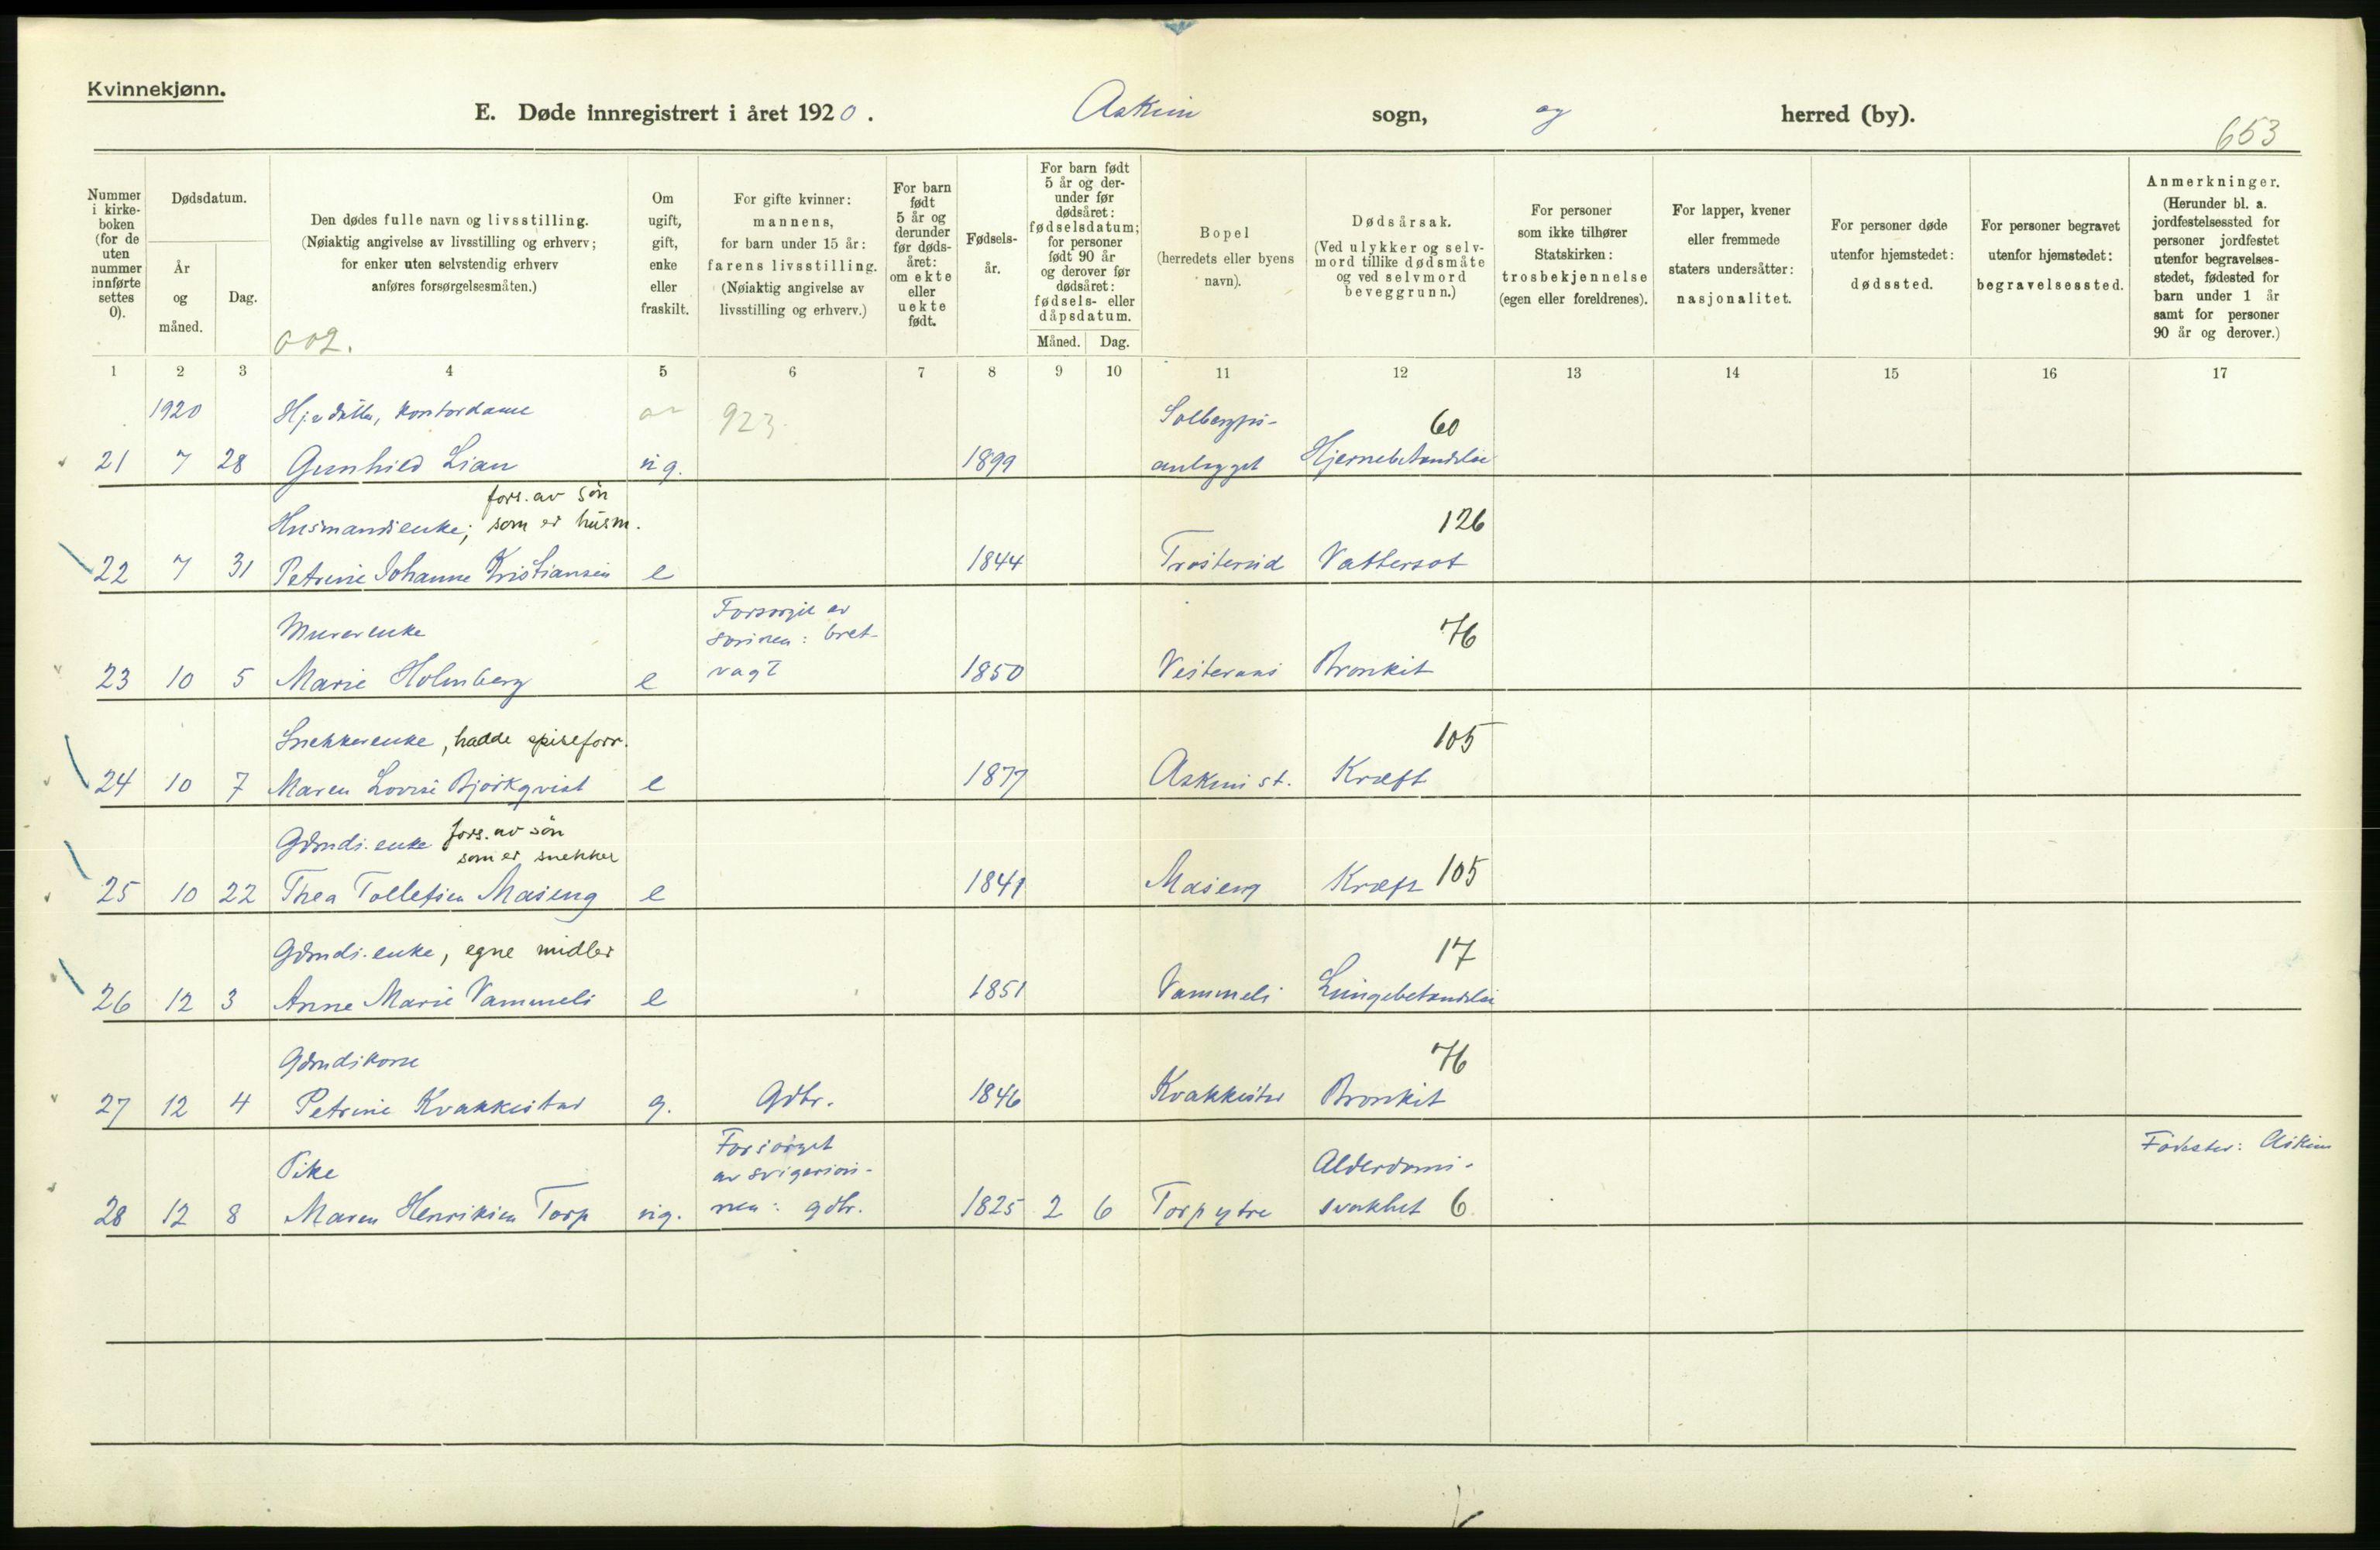 Kvinnekjønn.
E. Døde innregistrert i året 1920. Askim sogn, og herred (by).
653
Nummer i kirke-boken (for de uten nummer innførte settes 0).
Dødsdatum.
År og måned.
Dag.
Den dødes fulle navn og livsstilling.
(Nøiaktig angivelse av livsstilling og erhverv;
for enker uten selvstendig erhverv
anføres forsørgelsesmåten.)
002.
Om ugift, gift, enke eller fraskilt.
For gifte kvinner: mannens, for barn under 15 år: farens livsstilling. (Nøiaktig angivelse av livsstilling og erhverv.)
For barn født 5 år og derunder før døds-året: om ekte eller uekte født.
Fødsels-år.
For barn født 5 år og der-under før dødsåret: fødselsdatum; for personer født 90 år og derover før dødsåret: fødsels- eller dåpsdatum.
Måned. Dag.
Bopel
(herredets eller byens navn).
Dødsårsak.
(Ved ulykker og selv-mord tillike dødsmåte og ved selvmord beveggrunn.)
For personer som ikke tilhører Statskirken: trosbekjennelse (egen eller foreldrenes).
For lapper, kvener eller fremmede staters undersåtter: nasjonalitet.
For personer døde utenfor hjemstedet: dødssted.
For personer begravet utenfor hjemstedet: begravelsessted.
Anmerkninger.
(Herunder bl. a. jordfestelsessted for personer jordfestet utenfor begravelses-stedet, fødested for barn under 1 år samt for personer 90 år og derover.)
1 2 3 4 5 6 7 8 9 10 11 12 13 14 15 16 17
1920 kontordame 923 60
21 7 28 Gunhild Lian ug. 1899 anlegget Hjernebetændelse
fors. av søn
Husmandsenke; som er husm. 126
22 7 31 Petrine Johanne Kristiansen e 1844 Trøsterud Vattersot
Murerenke 76
23 10 5 Marie Holmberg e 1850 Bronkit
Snekkerenke, hadde spiseforr. 105
24 10 7 Maren Lovise Bjørkqvist e 1877 Askim st. Kræft
Gdmds. enke fors. av søn
som er snekker
25 10 22 Thea Tollefsen Måseng e 1841 Måseng Kræft 105
Gdmds. enke, egne midler 17
26 12 3 Anne Marie Vammeli e 1851 Vammeli Lungebetændelse
Gdmdskone 76
27 12 4 Petrine Kvakkestad g. Gdbr. 1846 Kvakkestad Bronkit
Forsørget
Pike av svigersøn- Alderdoms- Fødested: Askim
28 12 8 Maren Henriksen Torp ug. nen: gdbr. 1825 2 6 Torp ytre svakhet 6